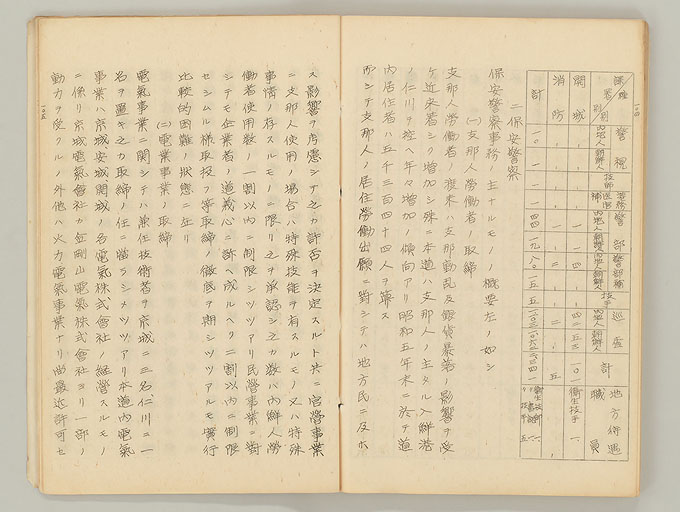 一〇四
課署
別
種別
警視
内地人
朝鮮人
技師
警部
内地人
朝鮮人
警部補
内地人
朝鮮人
技手
巡査
内地人
朝鮮人
計
地方待遇職員
開城
消防
計
衛生技手
二 保安警察
保安警察事務ノ主ナルモノノ概要左ノ如シ
(一)支那人勞働者ノ取締
支那人勞働者ノ渡来ハ支那動乱及銀價暴落ノ影響ヲ受
ケ近来著シク増加シ殊ニ本道ハ支那人ノ主タル入鮮港
ノ仁川ヲ控ヘ年々増加ノ傾向アリ昭和五年末ニ於テ道
内居住者ハ五千三百四十四人ヲ算ス
而シテ支那人ノ居住勞働出願ニ對シテハ地方民ニ及ホ
ス影響ヲ考慮シテ之カ許否ヲ決定スルト共ニ官營事業
ニ支那人使用ノ場合ハ特殊技能ヲ有スルモノ又ハ特殊
事情ノ存スルモノニ限リ之ヲ承認シ之カ数ハ内鮮人勞
働者使用数ノ一割以内ニ制限シツツアリ民營事業ニ對
シテモ企業者ノ道義心ニ訴ヘ成ルヘク二割以内ニ制限
セシムル様取扱フ等取締ノ徹底ヲ期シツツアルモ實行
比較的困難ノ状態ニ在リ
(二)電氣事業ノ取締
電氣事業ニ関シテハ兼任技術者ヲ京城ニ三名仁川ニ一
名ヲ置キ之カ取締ノ任ニ當ラシメツツアリ本道内電氣
事業ハ京城安城開城ノ各電氣株式會社ノ經營スルモノ
ニ係リ京城電氣會社カ金剛山電氣株式會社ヨリ一部ノ
動力ヲ受クルノ外他ハ火力電氣事業ナリ尚最近許可セ
一〇五